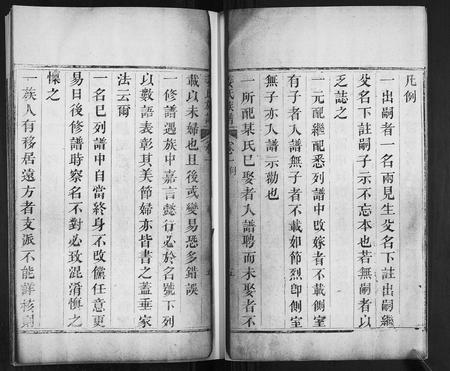 凡例
一出嗣者一名兩見生父名下註出嗣繼
父名下註嗣子示不忘本也若無嗣者以
乏誌之
一元配繼配悉列譜中改嫁者不載側室
有子者入譜無子者不載如節烈即側室
無子亦入譜示勸也
一所配某氏已娶者入譜聘而未娶者不
載以未婦也且後或變易恐多錯誤
一修譜遇族中嘉言懿行必於名號下列
以數語表彰其美節婦亦皆書之蓋垂家
法云爾
一名已列譜中自當終身不改儻任意更
易日後修譜時察名不對必致混淆慎之
懍之
一族人有移居遠方者支派不能詳核